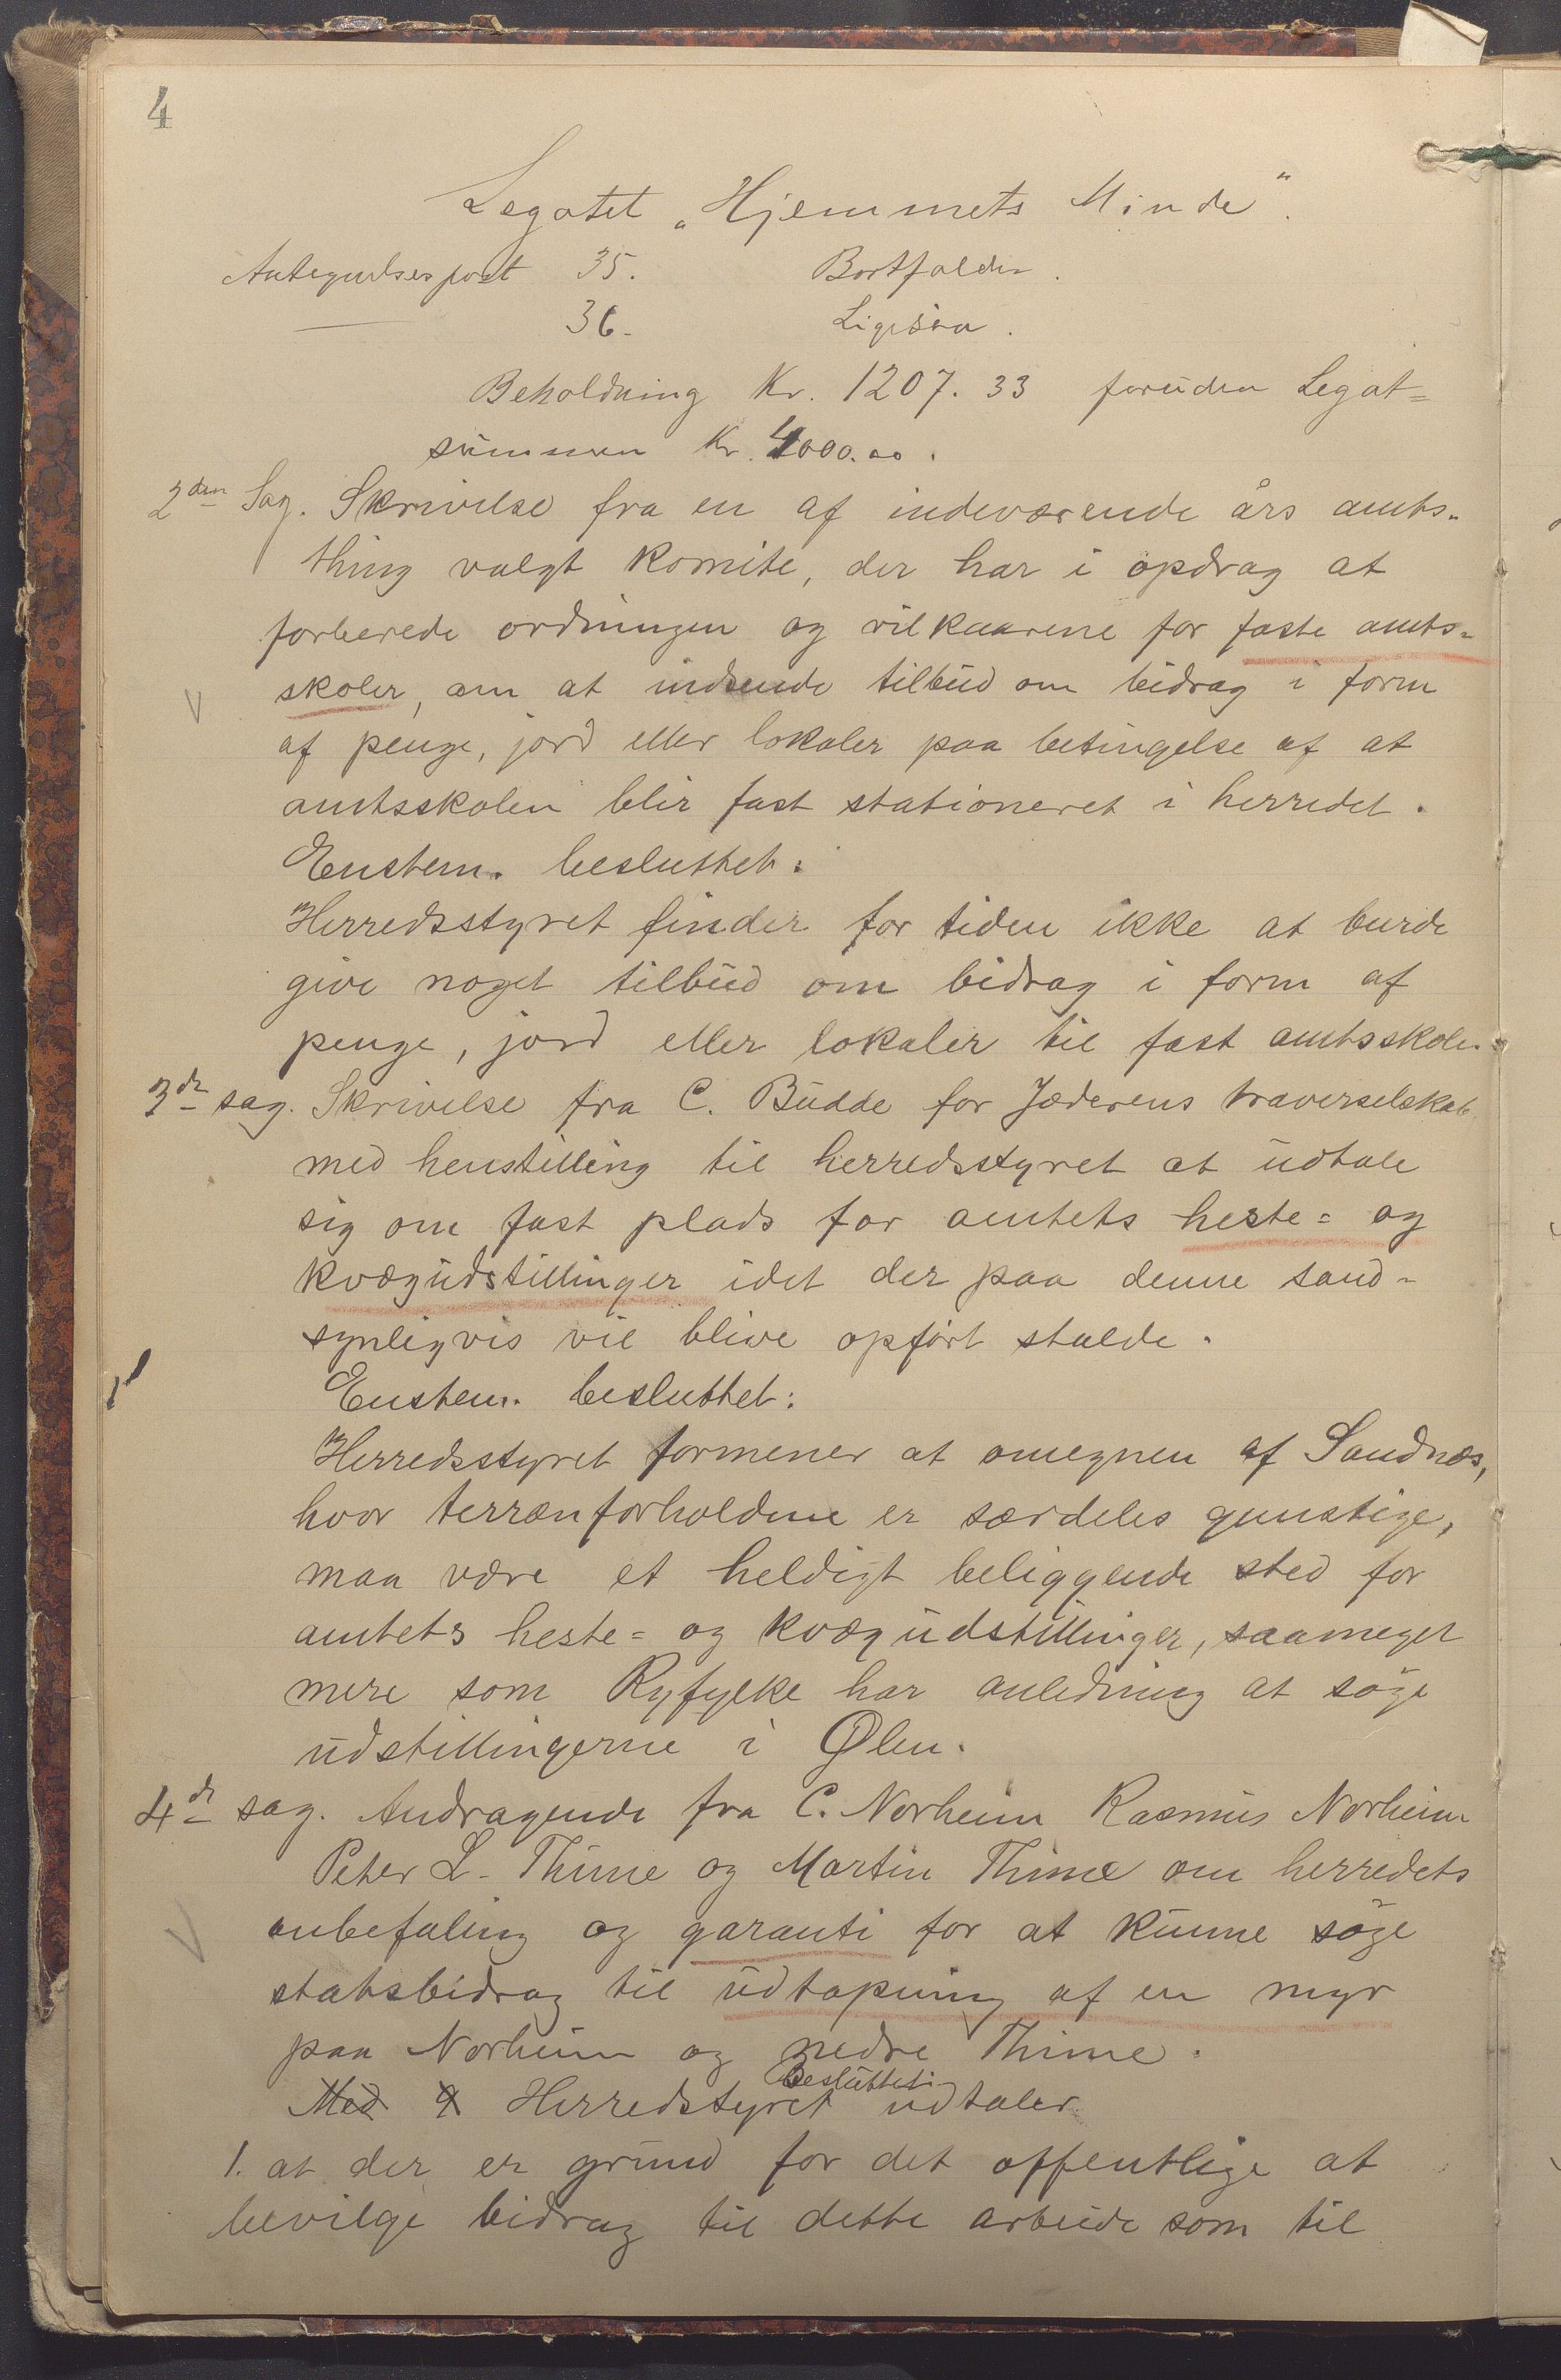 4
Legatet „Hjemmets Minde".
Antegnelsespost 35. Bortfalder.
36. Ligesaa.
Beholdning Kr. 1207.33 foruden Legat=
summen Kr. 4000.00.
2den Sag. Skrivelse fra en af indeværende års amts-
thing valgt komite, der har i opdrag at
forberede ordningen og vilkaarene for faste amts-
skoler, om at indsende tilbud om bidrag i form
af penge, jord eller lokaler paa betingelse af at
amtsskolen blir fast stationeret i herredet.
Enstem. besluttet:
Herredsstyret finder for tiden ikke at burde
give noget tilbud om bidrag i form af
penge, jord eller lokaler til fast amtsskole.
3de sag. Skrivelse fra C. Budde for Jæderens traverselskab
med henstilling til herredsstyret at udtale
sig om fast plads for amtets heste= og
kvægudstillinger idet der paa denne sand-
synligvis vil blive opført stalde.
Enstem. besluttet:
Herredsstyret formener at omegnen af Sandnæs,
hvor terrænforholdene er særdeles gunstige,
maa være et heldigt beliggende sted for
amtets heste= og kvægudstillinger, saameget
mere som Ryfylke har anledning at søge
udstillingerne i Ølen.
4de sag. Andragende fra C. Norheim Rasmus Norheim
Peter L. Thime og Martin Thime om herredets
anbefaling og garanti for at kunne søge
statsbidrag til udtapning af en myr
paa Norheim og nedre Thime.
Besluttet:
Med 9 Herredstyret udtaler
1. at der er grund for det offentlige at
bevilge bidrag til dette arbeide som til